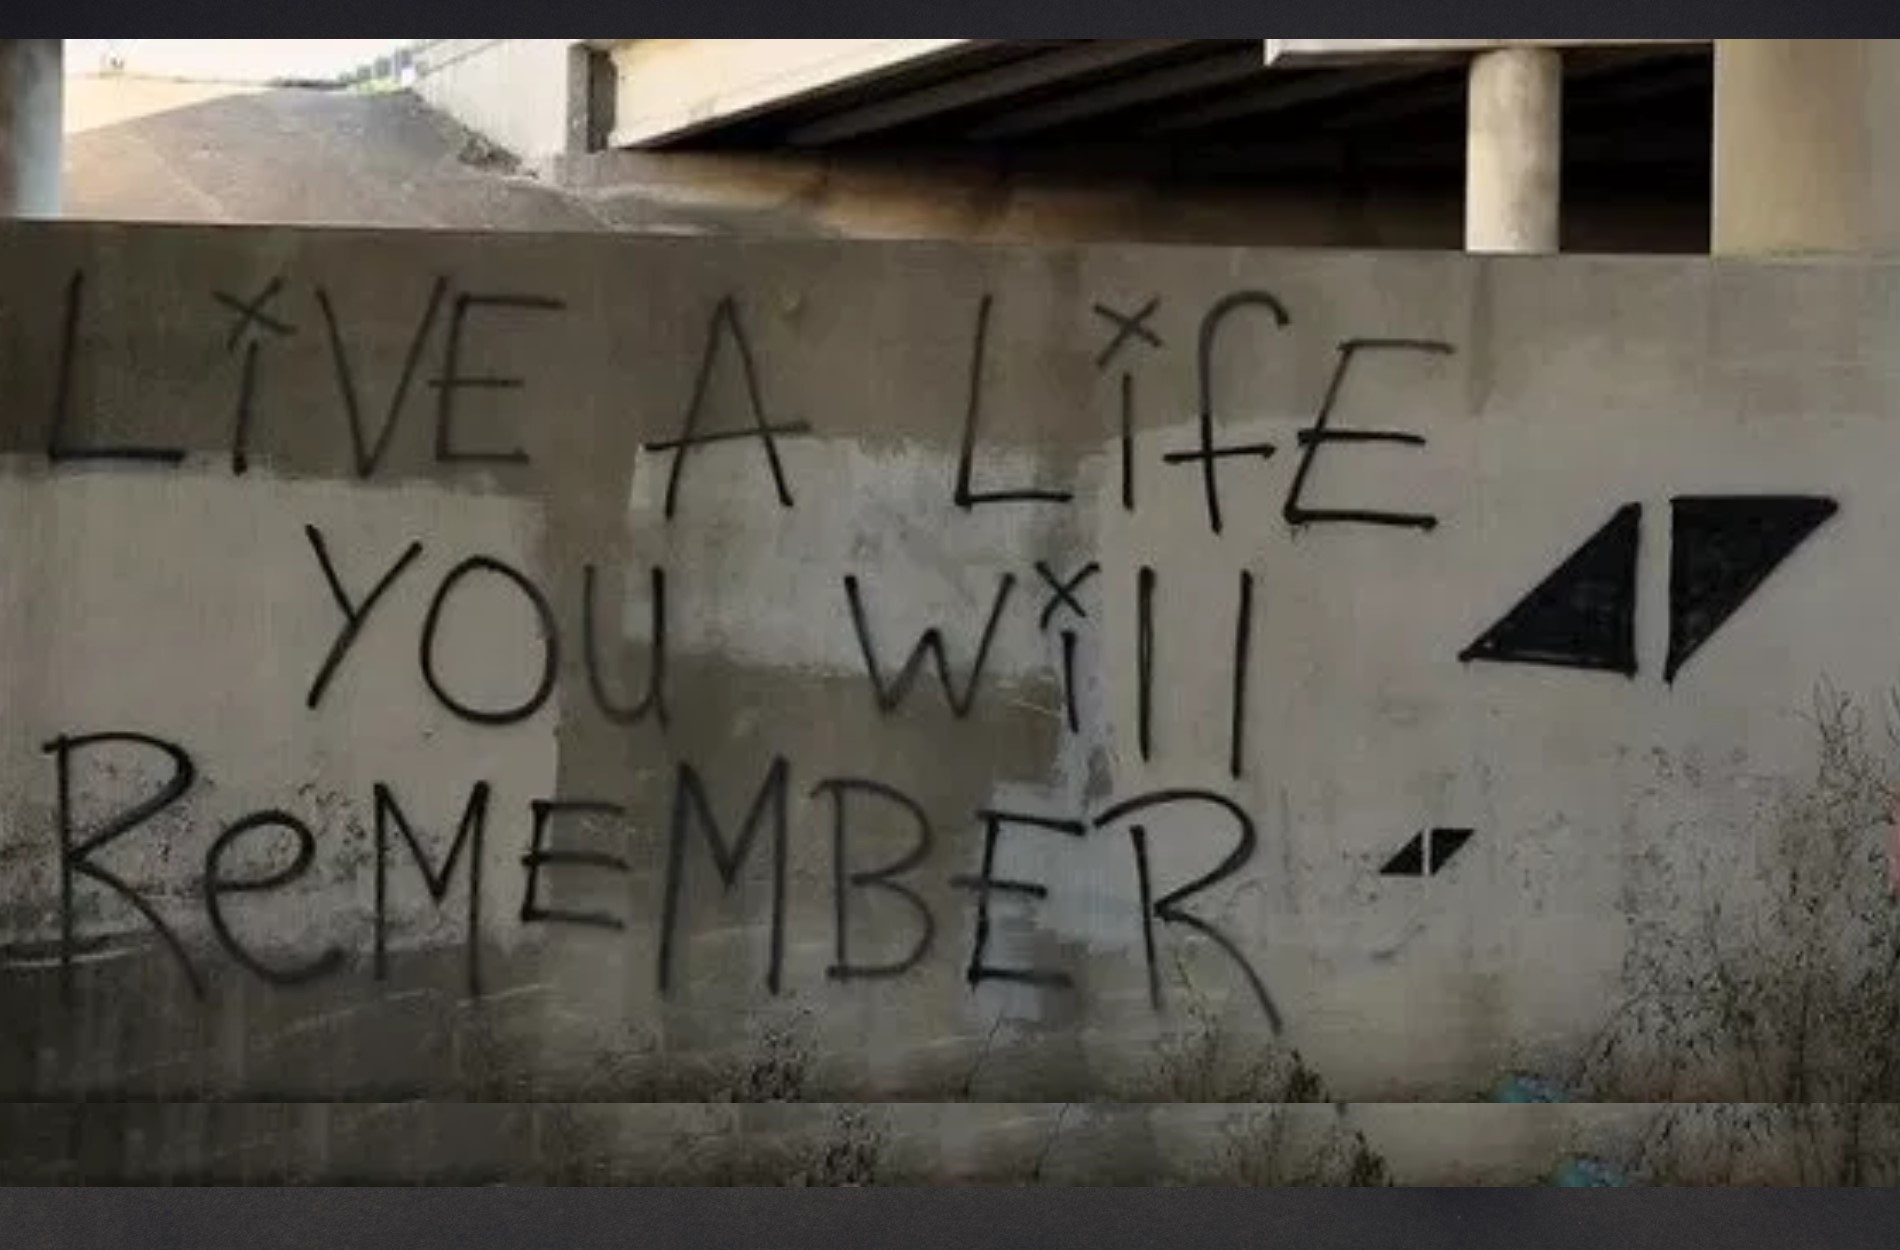 LiVE A LifE
YOU Will
ReMEMBER